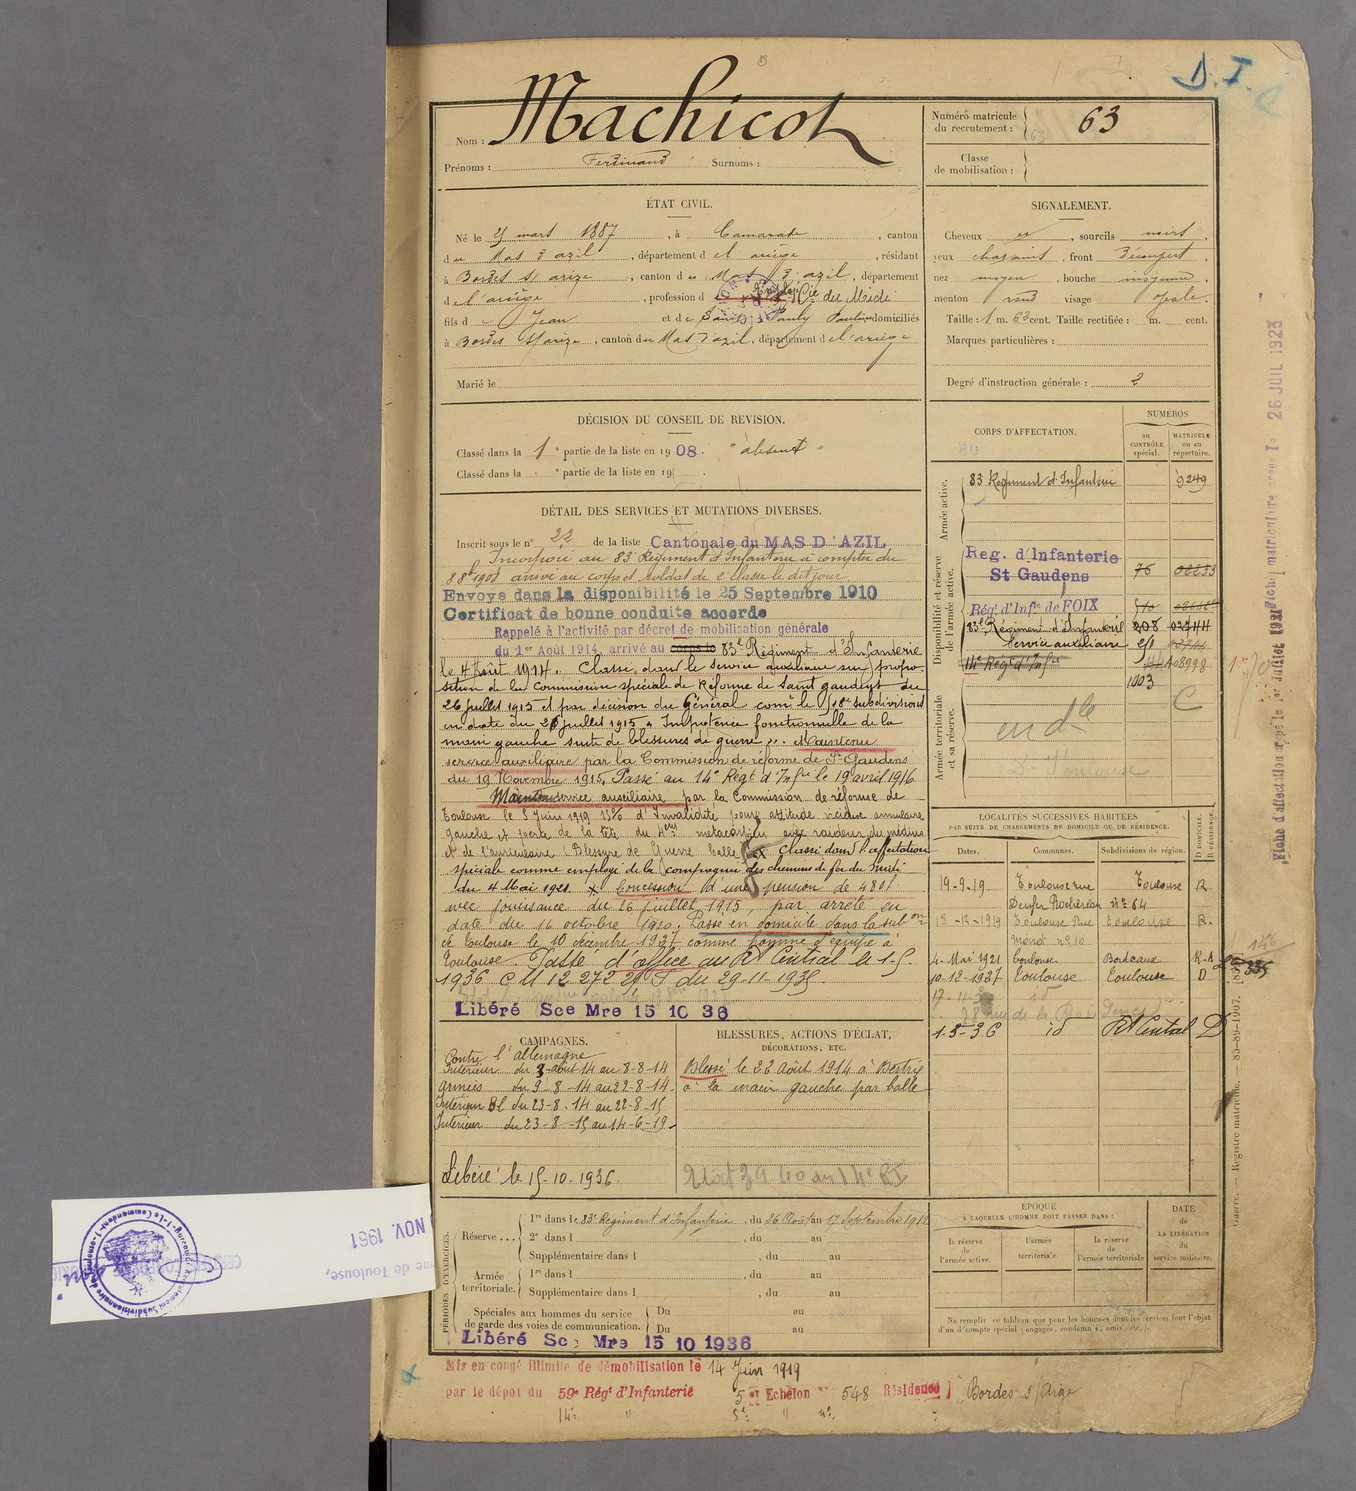 D. I.
Nom : Machicot
Prénoms : Ferdinand Surnoms :
Numéro matricule du recrutement : 63
63
Classe de mobilisation :
ÉTAT CIVIL.
Né le mars 1887, à Camarade, canton
du Mas d'azil, département de l'ariège, résidant
à Bordes s/ arize, canton du Mas d'azil, département
de l'ariège, profession d Cie du Midi
fils de Jean et de Pauly Pauline domiciliés
à Bordes s/ arize, canton du Mas d'azil, département de l'ariège
Marié le
SIGNALEMENT.
Cheveux , sourcils noirs,
yeux chatains, front découvert,
nez moyen, bouche moyenne,
menton rond visage ovale.
Taille : 1 m. 63 cent. Taille rectifiée : m. cent.
Marques particulières :
Degré d'instruction générale : 2
DÉCISION DU CONSEIL DE REVISION.
Classé dans la 1e partie de la liste en 1908. "absent"
Classé dans la e partie de la liste en 19 .
CORPS D'AFFECTATION.
NUMÉROS
AU CONTRÔLE spécial.
MATRICULE ou au répertoire.
Armée active.
83 Régiment d'Infanterie 9249
Disponibilité et réserve de l'armée active.
Reg. d'Infanterie
St Gaudens 76
Régt d'Infie de FOIX
83e Régiment d'Infanterie 208
Service auxiliaire
14e Régt d'Infie 08998
1003
Armée territoriale et sa réserve.
C
Toulouse
DÉTAIL DES SERVICES ET MUTATIONS DIVERSES.
Inscrit sous le n° 22 de la liste Cantonale du MAS D'AZIL
Incorporé au 83e Régiment d'Infanterie à compter du
8 8bre 1908 arrivé au corps et soldat de 2e classe le dit jour
Envoyé dans la disponibilité le 25 Septembre 1910
Certificat de bonne conduite accordé
Rappelé à l'activité par décret de mobilisation générale
du 1er Août 1914, arrivé au corps le 83e Régiment d'Infanterie
le 4 Août 1914. Classé dans le service auxiliaire sur propo-
sition de la Commission spéciale de Réforme de Saint gaudens du
26 juillet 1915 et par décision du Général comt le 18e subdivisions
en date du 26 juillet 1915 "Impotence fonctionnelle de la
main gauche suite de blessures de guerre". Maintenu
service auxiliaire par la Commission de réforme de St Gaudens
du 19 Novembre 1915. Passé au 14e Régt d'Infie le 19 avril 1916
Maintenu service auxiliaire par la Commission de réforme de
Toulouse le 5 Juin 1919 15% d'Invalidité pour attitude vicieuse annulaire
gauche et perte de la tête du métacarpien avec raideur du médius
et de l'auriculaire. Blessure de Guerre balle Classé dans l'affectation
spéciale comme employé de la Compagnie des chemins de fer du Midi
du 4 Mai 1921. Concession d'une pension de 480f
avec jouissance du 26 juillet 1915, par arrêté en
date du 16 octobre 1920. Passé en domicile dans la subon
de Toulouse le 10 décembre 1927 comme homme d'équipe à
Toulouse. Passé d'office au RM Central le 1-5-
1936 CM 12 272 du 29-11-1935
Libéré Sce Mre 15 10 36
LOCALITÉS SUCCESSIVES HABITÉES
PAR SUITE DE CHANGEMENTS DE DOMICILE OU DE RÉSIDENCE.
Dates. Communes. Subdivisions de région. D DOMICILE. R RÉSIDENCE.
19-9-19 Toulouse rue Toulouse R
Denfer Rochereau n° 64
18-12-1919 Toulouse Rue Toulouse R.
n° 10
4-Mai 1921 Toulouse Bordeaux R-A
10-12-1927 Toulouse Toulouse D
17-11- id
28 rue de la
1-5-36 id RM Central D
335
CAMPAGNES.
Contre l'allemagne
Intérieur du 3-août-14 au 8-8-14
Armées du 9-8-14 au 22-8-14.
Intérieur Bl du 23-8-14 au 22-8-15
Intérieur du 23-8-15 au 14-6-19.
Libéré le 15-10-1936.
BLESSURES, ACTIONS D'ÉCLAT,
DÉCORATIONS, ETC.
Blessé le 22 Août 1914 à Bertrix
à la main gauche par balle
PÉRIODES D'EXERCICES.
Réserve ... 1re dans le 83e Régiment d'Infanterie, du 26 Août au 17 Septembre 1912
2e dans l , du au
Supplémentaire dans l , du au
Armée territoriale. 1re dans l , du au
Supplémentaire dans l , du au
Spéciales aux hommes du service de garde des voies de communication. Du au
Du au
Libéré Sce Mre 15 10 1936
ÉPOQUE
A LAQUELLE L'HOMME DOIT PASSER DANS :
la réserve de l'armée active.
l'armée territoriale.
la réserve de l'armée territoriale
DATE de LA LIBÉRATION du service militaire.
Ne remplir ce tableau que pour les hommes dont les services font l'objet
d'un décompte spécial (engagés, condamnés, omis, etc.).
Mis en congé illimité de démobilisation le 14 Juin 1919
par le dépôt du 59e Régt d'Infanterie 5 er Echelon n° 548 Résidence Bordes s/ Arize
14e " 5e " n°.
Guerre. — Registre matricule. — 85-89-1907.
26 JUIL 1923
NOV. 1961
de Toulouse,